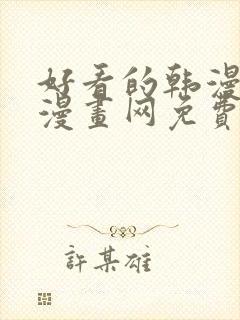 好看的韩漫
漫畫网免費
許某雄